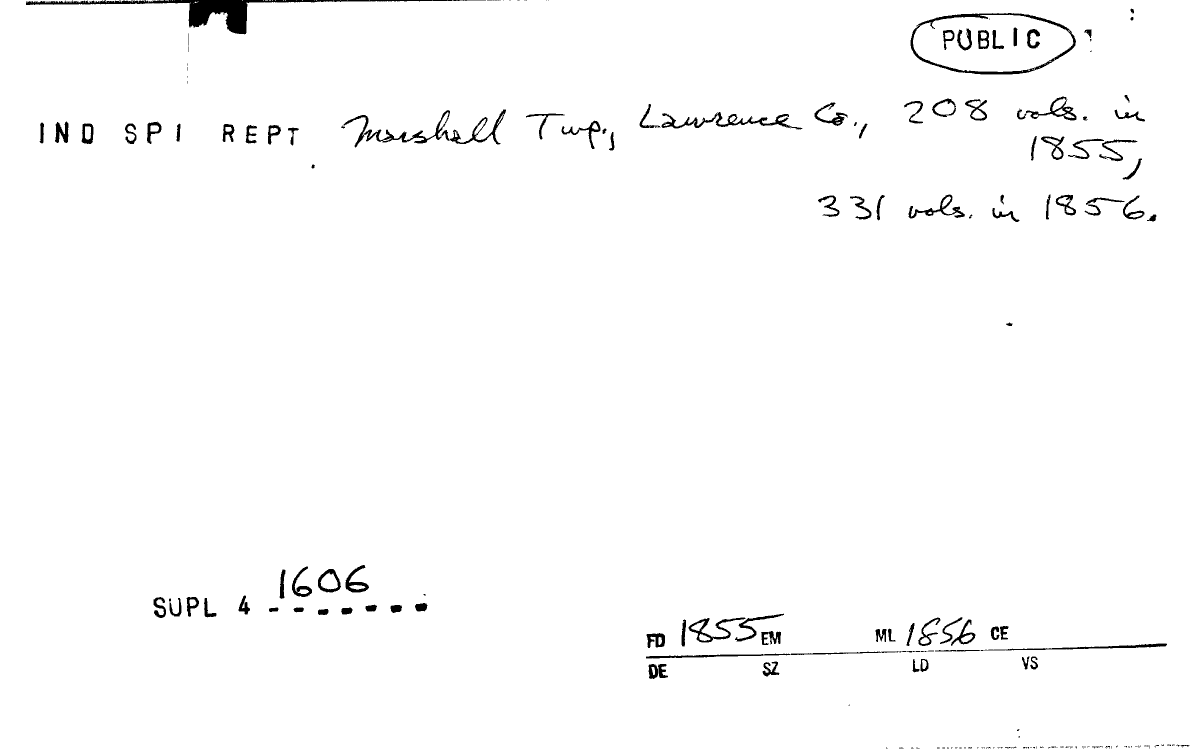 PUBLIC
IND SPI REPT Marshall Twp., Lawrence Co., 208 vols. in
1855,
331 vols. in 1856.
SUPL 4 1606
FD 1855 EM ML 1856 CE
DE SZ LD VS